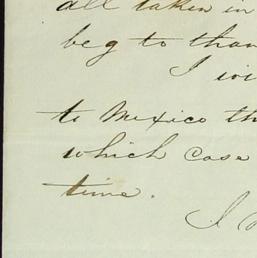 all taken in
beg to than
I wi
to Mexico th
which case
time.
I